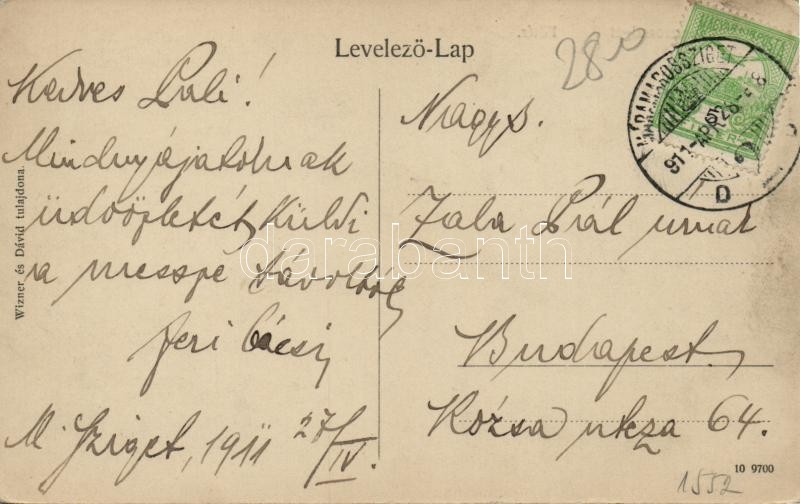 Levelező-Lap
2800
Kedves Pali!
Mindnyájatoknak
üdvözletét küldi
a messze távolból
Feri bácsi
M. Sziget, 1911 27/IV.
Nagys.
Zala Pál urnak
Budapest
Rózsa utcza 64.
Wizner és Dávid tulajdona.
MAGYAR KIR. POSTA
MÁRAMAROSSZIGET
911 APR 28
D
darabanth
10 9700
1552